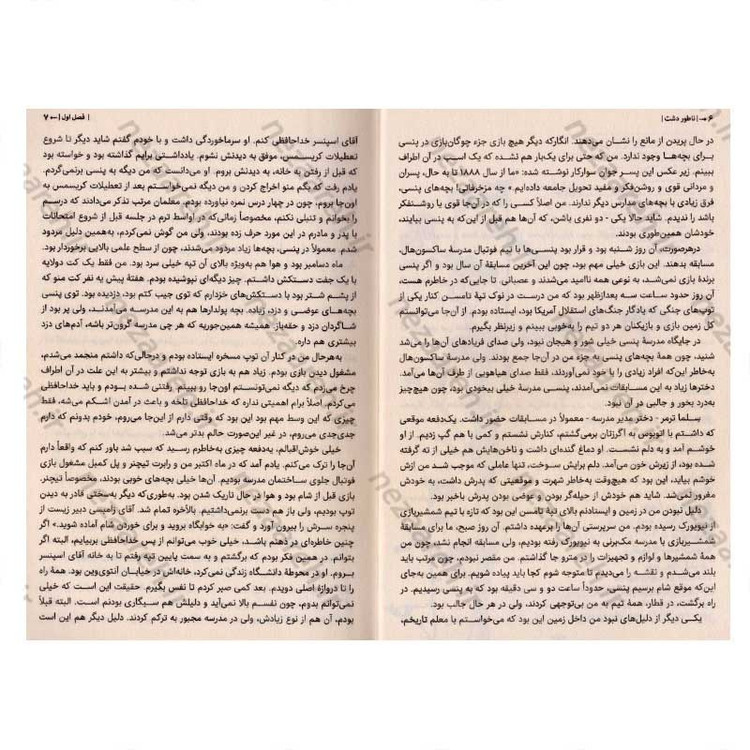 ۶ ← | ناطور دشت |
در حال پریدن از مانع را نشان می‌دهند. انگارکه دیگر هیچ بازی جزء چوگان‌بازی در پنسی
برای بچه‌ها وجود ندارد. من که حتی برای یک‌بار هم نشده که یک اسب در آن اطراف
ببینم. زیر عکس این پسر جوان سوارکار نوشته شده: «ما از سال ۱۸۸۸ تا به حال، پسران
و مردانی قوی و روشن‌فکر و مفید تحویل جامعه داده‌ایم.» چه مزخرفاتی! بچه‌های پنسی،
فرق زیادی با بچه‌های مدارس دیگر ندارند. من اصلاً کسی را که در آن‌جا قوی یا روشنفکر
باشد را ندیدم. شاید حالا یکی - دو نفری باشن، که آن‌ها هم قبل از این‌که به پنسی بیایند،
خودشان همین‌طوری بودند.
درهرصورت، آن روز شنبه بود و قرار بود پنسی‌ها با تیم فوتبال مدرسهٔ ساکسون‌هال،
مسابقه بدهند. این بازی خیلی مهم بود، چون این آخرین مسابقهٔ آن سال بود و اگر پنسی
برندهٔ بازی نمی‌شد، به نوعی همه ناامید می‌شدند و عصبانی. تا جایی‌که در خاطرم هست،
آن روز حدود ساعت سه بعدازظهر بود که من درست در نوک تپهٔ تامسن کنار یکی از
توپ‌های جنگی که یادگار جنگ‌های استقلال آمریکا بود، ایستاده بودم. از آن‌جا می‌توانستم
کل زمین بازی و بازیکنان هر دو تیم را به‌خوبی ببینم و زیرنظر بگیرم.
در جایگاه مدرسهٔ پنسی خیلی شور و هیجان نبود، ولی صدای فریادهای آن‌ها را می‌شد
شنید، چون همهٔ بچه‌های پنسی به جزء من در آن‌جا جمع بودند. ولی مدرسهٔ ساکسون‌هال
به‌خاطر این‌که افراد زیادی را با خود نمی‌آوردند، فقط صدای هیاهویی از طرف آن‌ها می‌آمد.
دخترها زیاد به این مسابقات نمی‌آمدند، پنسی مدرسهٔ خیلی بیخودی بود، چون هیچ‌چیز
به‌درد بخور و جالبی در آن نبود.
سلما ترمر - دختر مدیر مدرسه - معمولاً در مسابقات حضور داشت. یک‌دفعه موقعی
که داشتم با اتوبوس به اگزتان برمی‌گشتم، کنارش نشستم و کمی با هم گپ زدیم. از او
خوشم آمد و به دلم نشست. او دماغ گنده‌ای داشت و ناخن‌هایش هم خیلی از ته گرفته
شده بود، از زیرش خون می‌آمد. دلم برایش سوخت، تنها عاملی که موجب شد من از
خوشم بیاید، این بود که هیچ‌وقت به‌خاطر شهرت و موقعیتی که پدرش داشت، به خودش
مغرور نمی‌شد. شاید هم خودش از حیله‌گر بودن و عوضی بودن پدرش باخبر بود.
دلیل نبودن من در زمین و ایستادنم بالای تپهٔ تامسن این بود که تازه با تیم شمشیربازی
از نیویورک رسیده بودم. من سرپرستی آن‌ها را برعهده داشتم. آن روز صبح، ما برای مسابقهٔ
شمشیربازی با مدرسه مک‌برنی به نیویورک رفته بودیم، ولی مسابقه انجام نشد، چون من
همهٔ شمشیرها و لوازم و تجهیزات را در مترو جا گذاشتم. من مقصر نبودم، چون مرتب باید
بلند می‌شدم و نقشه را می‌دیدم تا متوجه شوم کجا باید پیاده شویم. برای همین به‌جای
این‌که موقع شام برسیم پنسی، حدوداً ساعت دو و سی دقیقه بود که به پنسی رسیدیم. در
راه برگشت، در قطار، همهٔ تیم به من بی‌توجهی کردند، ولی در هر حال جالب بود.
یکی دیگر از دلیل‌های نبود من داخل زمین این بود که می‌خواستم با معلم تاریخم،
| فصل اول | ← ۷
آقای اسپنسر خداحافظی کنم. او سرماخوردگی داشت و با خودم گفتم شاید دیگر تا شروع
تعطیلات کریسمس، موفق به دیدنش نشوم. یادداشتی برایم گذاشته بود و خواسته بود
که قبل از رفتن به خانه، به دیدنش بروم. او می‌دانست که من دیگه به پنسی برنمی‌گردم.
یادم رفت که بگم منو اخراج کردن و من دیگه نمی‌خواستم بعد از تعطیلات کریسمس به
این‌جا بروم، چون در چهار درس نمره نیاورده بودم. معلمان مرتب تذکر می‌دادند که درسم
را بخوانم و تنبلی نکنم، مخصوصاً زمانی‌که در اواسط ترم در جلسه قبل از شروع امتحانات
با پدر و مادرم در این مورد حرف زده بودند، ولی من گوش نمی‌کردم، به‌همین دلیل مردود
شدم. معمولاً در پنسی، بچه‌ها زیاد مردود می‌شدند، چون از سطح علمی بالایی برخوردار بود.
ماه دسامبر بود و هوا هم به‌ویژه بالای آن تپه خیلی سرد بود. من فقط یک کت دولایه
با یک جفت دستکش داشتم. چیز دیگه‌ای نپوشیده بودم. هفتهٔ پیش یه نفر کت منو که
از پشم شتر بود با دستکش‌های خزدارم که توی جیب کتم بود، دزدیده بود. توی پنسی
بچه‌های عوضی و دزد، زیاده. بچه پولدارها هم به این مدرسه می‌آمدند، ولی پر بود از
شاگردان دزد و حقه‌باز. همیشه همین‌جوریه که هر چی مدرسه گرون‌تر باشه، آدم‌های دزد
بیشتری هم داره.
به‌هرحال من در کنار آن توپ مسخره ایستاده بودم و درحالی‌که داشتم منجمد می‌شدم،
مشغول دیدن بازی بودم. زیاد هم به بازی توجه نداشتم و بیشتر به این علت در آن اطراف
چرخ می‌زدم که دیگه نمی‌تونستم اون‌جا رو ببینم. رفتنی شده بودم و باید خداحافظی
می‌کردم. اصلاً برام اهمیتی نداره که خداحافظی تلخه و باعث در آمدن اشکم می‌شه، فقط
چیزی که این وسط مهم بود این بود که وقتی دارم از این‌جا می‌روم، خودم بدونم که دارم
جدی‌جدی می‌روم، در غیر این‌صورت حالم بدتر می‌شد.
خیلی خوش‌اقبالم. یه‌دفعه چیزی به‌خاطرم رسید که سبب شد باور کنم که واقعاً دارم
آن‌جا را ترک می‌کنم. یادم آمد که در ماه اکتبر من و رابرت تیچنر و پل کمبل مشغول بازی
فوتبال جلوی ساختمان مدرسه بودیم. آن‌ها خیلی بچه‌های خوبی بودند، مخصوصاً تیچنر.
بازی قبل از شام بود و هوا در حال تاریک شدن بود. به‌طوری‌که دیگر به‌سختی قادر به دیدن
توپ بودیم، ولی باز هم دست برنمی‌داشتیم. بالأخره تمام شد. آقای زامبیسی دبیر زیست از
پنجره سرش را بیرون آورد و گفت: «به خوابگاه بروید و برای خوردن شام آماده شوید.» اگر
چنین خاطره‌ای در ذهنم باشد، خیلی خوب می‌توانم از پس خداحافظی بربیایم، البته اگر
بتوانم. در همین فکر بودم که برگشتم و به سمت پایین تپه رفتم تا به خانه آقای اسپنسر
بروم. او در محوطهٔ دانشگاه زندگی نمی‌کرد، خانه‌اش در خیابان انتوی‌وین بود. همهٔ راه
را تا دروازهٔ اصلی دویدم. بعد کمی صبر کردم تا نفس بگیرم. حقیقت این است که خیلی
نمی‌توانم بدوم، چون نفسم بالا نمی‌آید و دلیلش هم سیگاری بودنم است. البته قبلاً
بودم، آن هم از نوع زیادش، ولی در مدرسه مجبور به ترکم کردند. دلیل دیگر هم این است